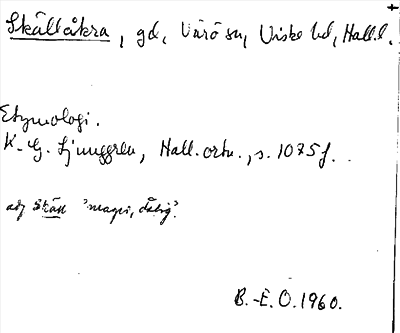 Skällåkra, gd, Värö sn, Viske hd, Hall.l.
Etymologi.
K.-G. Ljunggren, Hall. ortn., s. 1075 f.
adj skäll 'mager, dålig'.
B.-E.O. 1960.